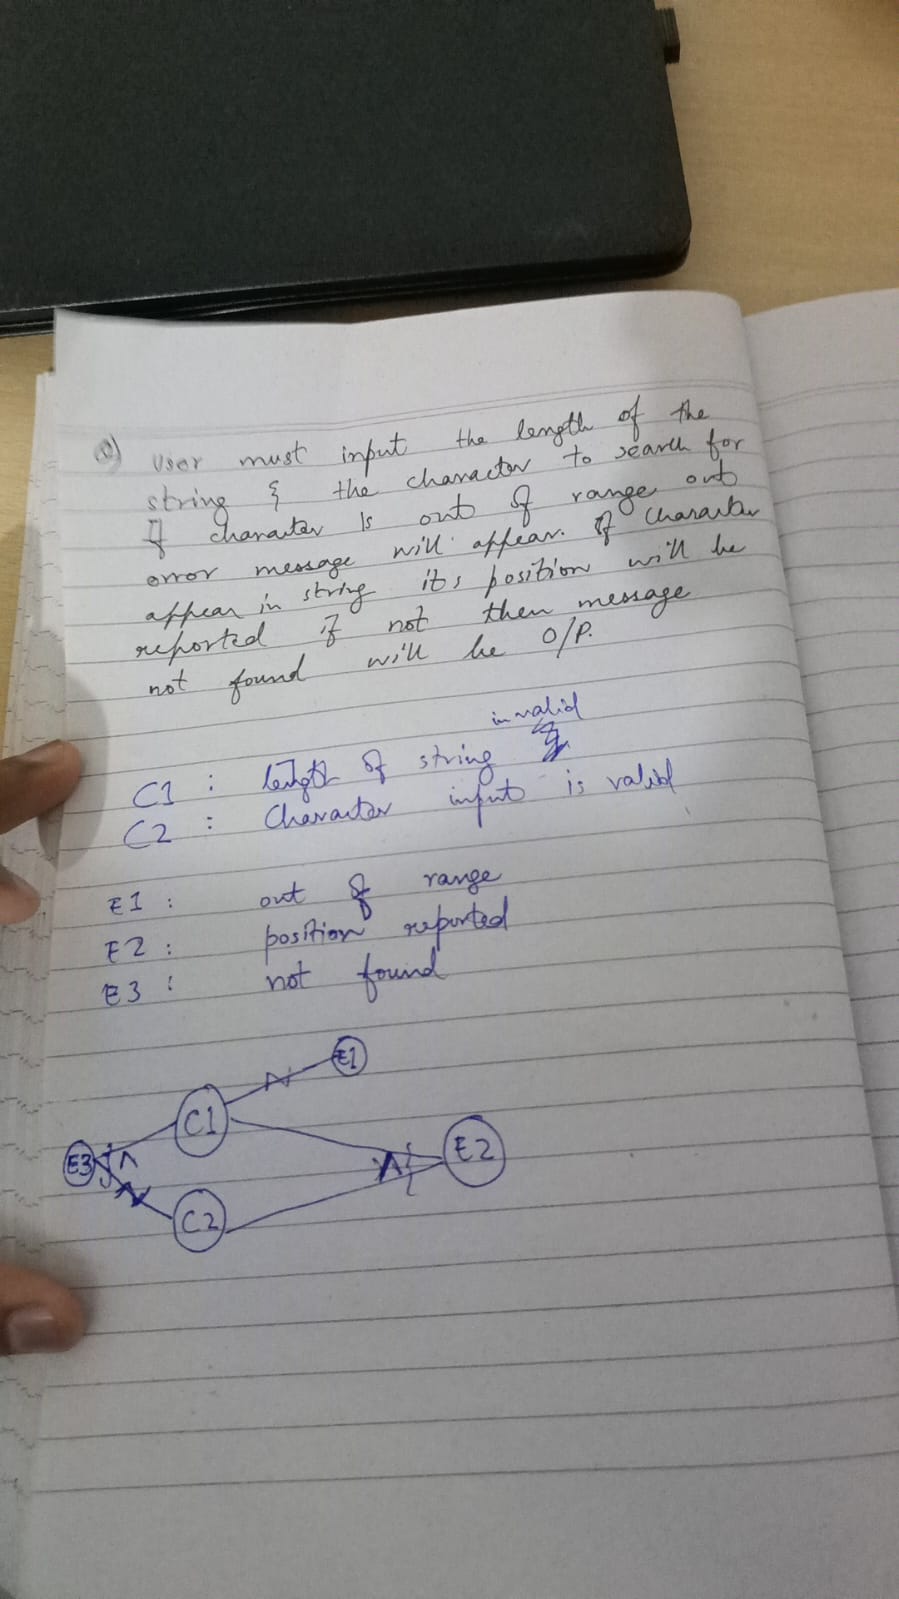 Q) User must input the length of the
string & the character to search for
If character is out of range out
error message will appear. If character
appear in string its position will be
reported if not then message
not found will be O/P.
invalid
C1 : length of string
C2 : Character input is valid
E1 : out of range
E2 : position reported
E3 : not found
E1
N
C1
E3 ∧ ∧ E2
N
C2